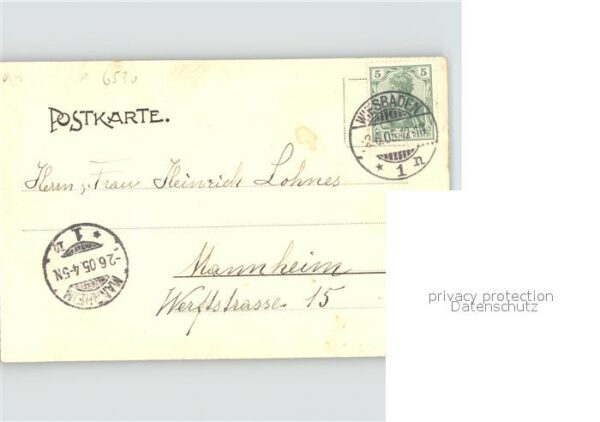 6530
5 5
POSTKARTE.
WIESBADEN
2.6.05.
* 1 n
Herrn u. Frau Heinrich Lohnes
* 1
-2.6.05.4-5N
MANNHEIM
Mannheim
Werftstrasse 15
privacy protection
Datenschutz